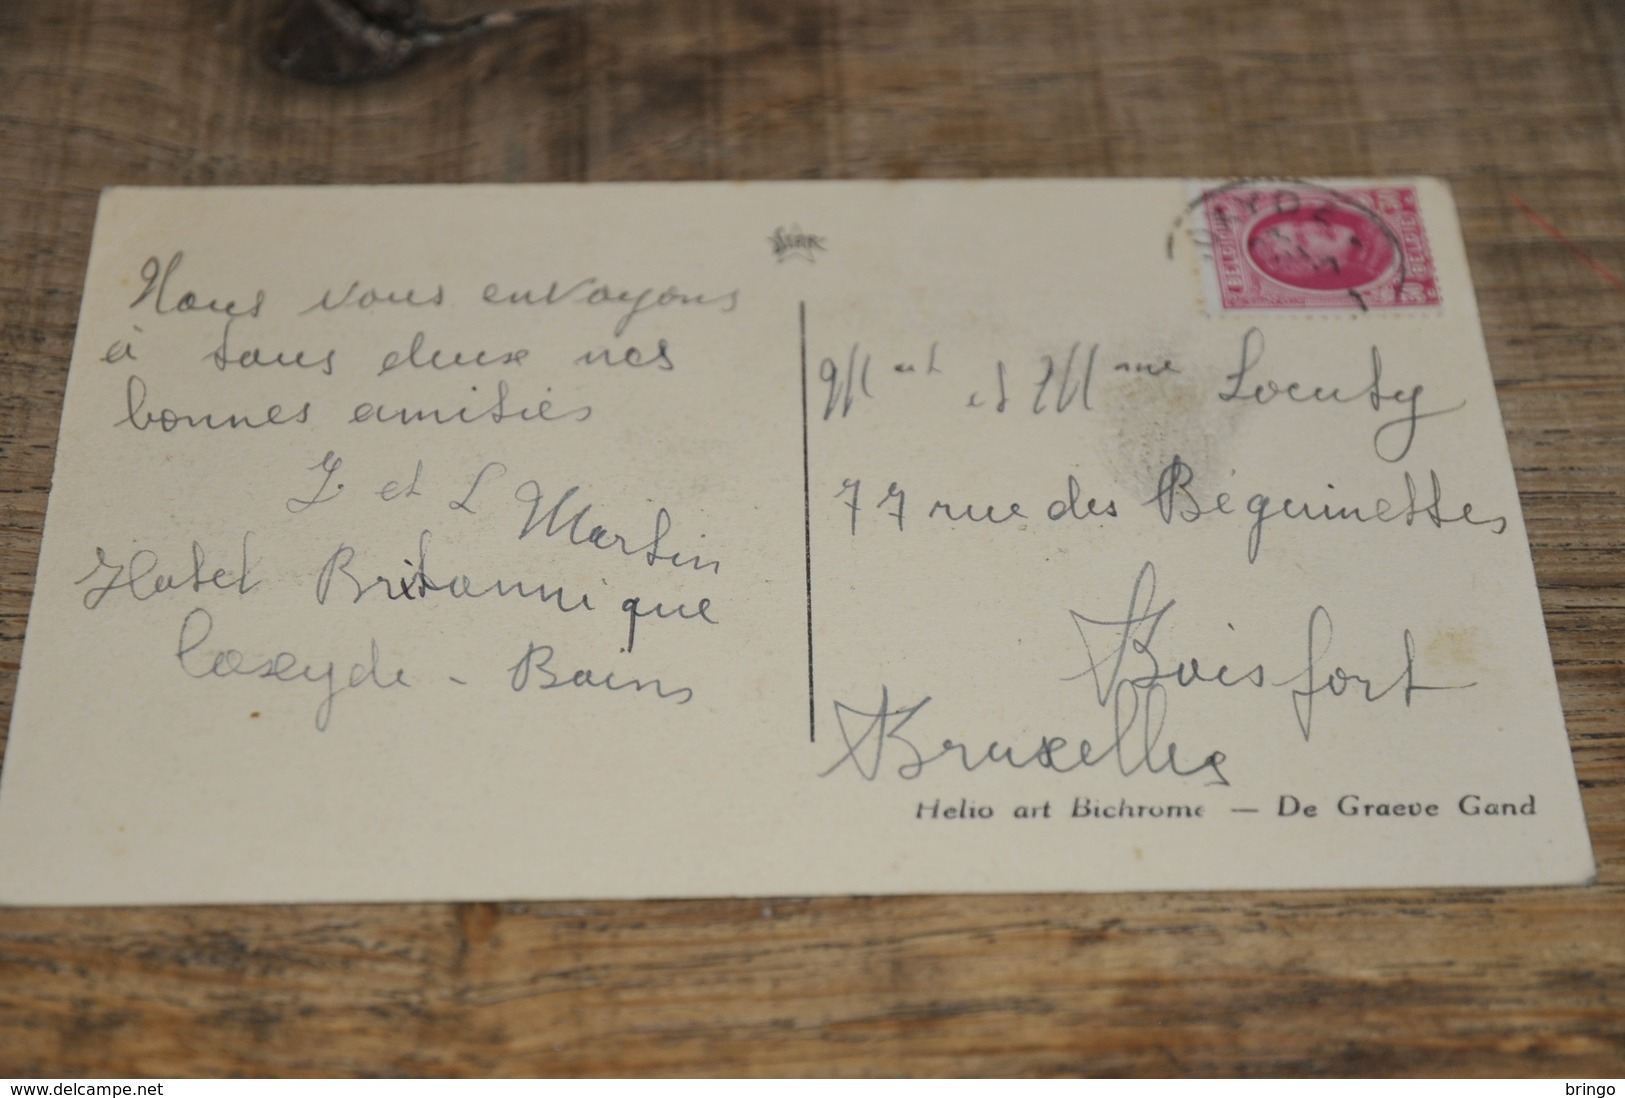 Nous vous envoyons
à tous deux nos
bonnes amitiés
J. et L Martin
Hotel Britannique
Coxyde - Bains
et Mme Locuty
77 rue des Béguinettes
Boisfort
Bruxelles
Helio art Bichrome — De Graeve Gand
BELGIE
delcampe.net
bringo